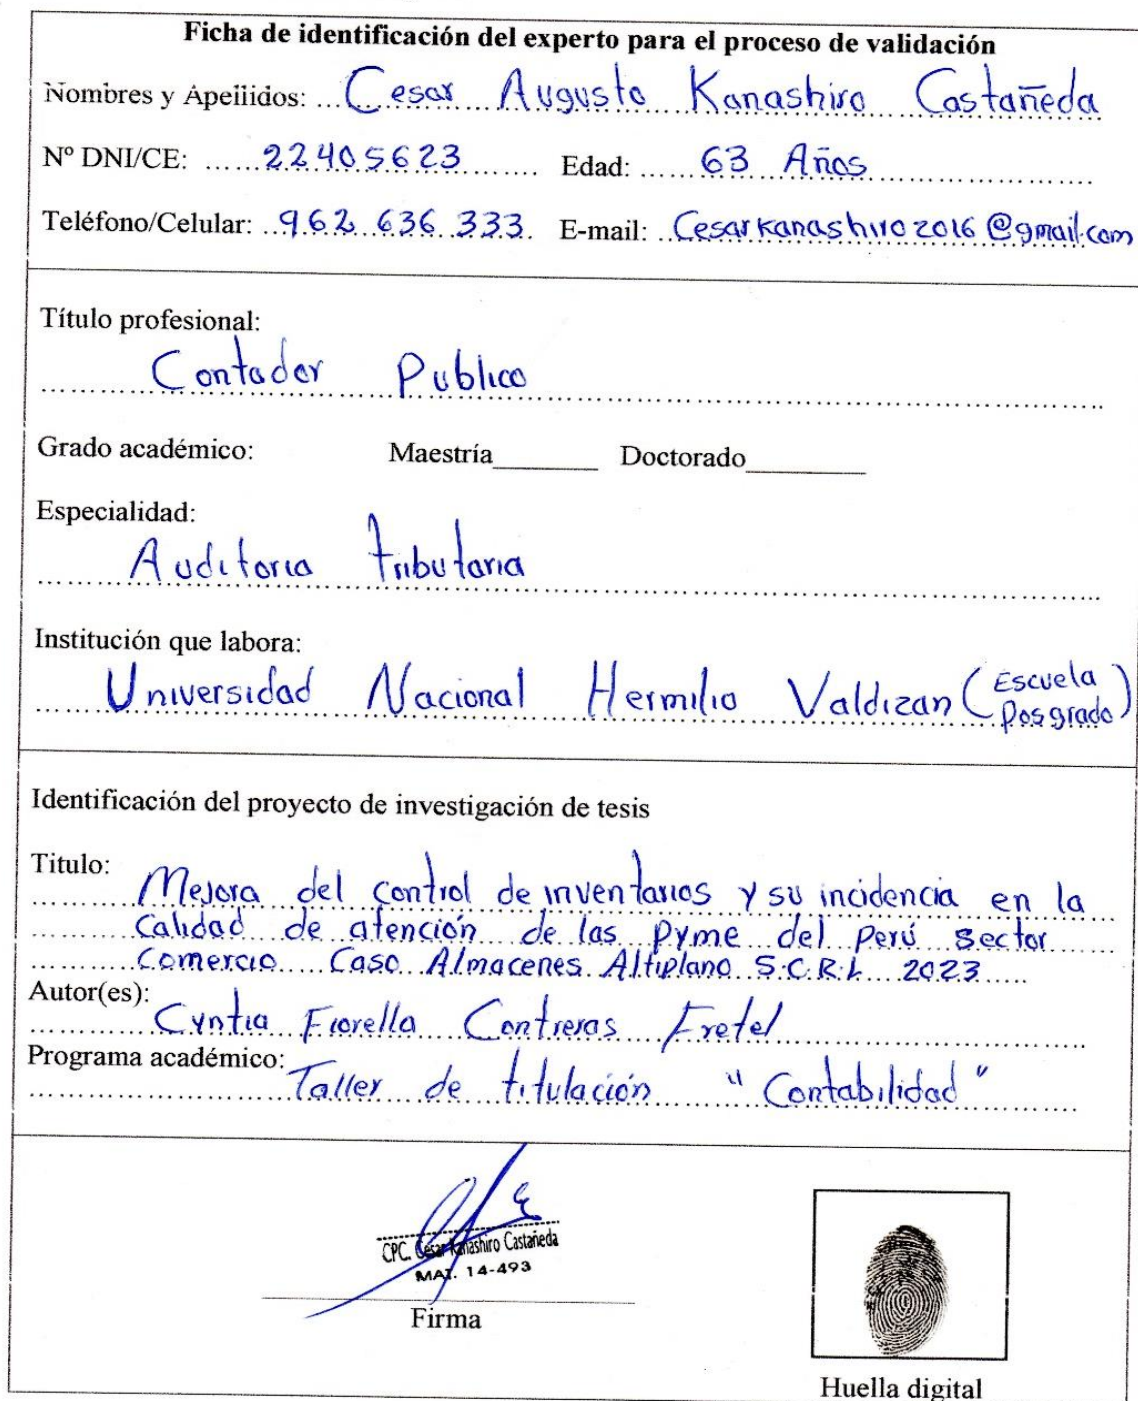 Ficha de identificación del experto para el proceso de validación
Nombres y Apellidos: Cesar Augusto Kanashiro Castañeda
Nº DNI/CE: 22405623 Edad: 63 Años
Teléfono/Celular: 962 636 333 E-mail: Cesarkanashiro2016@gmail.com
Título profesional:
Contador Publico
Grado académico: Maestría________ Doctorado________
Especialidad:
Auditoria Tributaria
Institución que labora:
Universidad Nacional Hermilio Valdizan (Escuela Posgrado)
Identificación del proyecto de investigación de tesis
Titulo:
Mejora del control de inventarios y su incidencia en la
Calidad de atención de las Pyme del Perú Sector
Comercio Caso Almacenes Altiplano S.C.R.L 2023
Autor(es):
Cyntia Fiorella Contreras Fretel
Programa académico:
Taller de titulación "Contabilidad"
CPC. Cesar Kanashiro Castañeda
MAT. 14-493
Firma
Huella digital